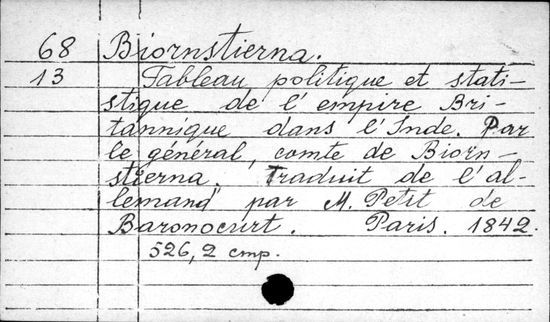 68 Biornstierna.
13 Tableau politique et stati-
stique de l'empire Bri-
tannique dans l'Inde. Par
le général, comte de Biorn-
stierna. Traduit de l'al-
lemand par M. Petit de
Baronocurt. Paris. 1842.
526, 2 стр.